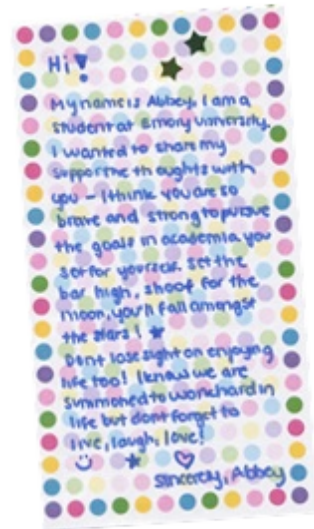 Hi!
My name is Abbey. I am a
student at Emory University.
I wanted to share my
supportive thoughts with
you - I think you are so
brave and strong to pursue
the goals in academia you
set for yourself. Set the
bar high, shoot for the
moon, you'll fall amongst
the stars!
Dont lose sight on enjoying
life too! I know we are
summoned to work hard in
life but dont forget to
live, laugh, love!
Sincerely, Abbey